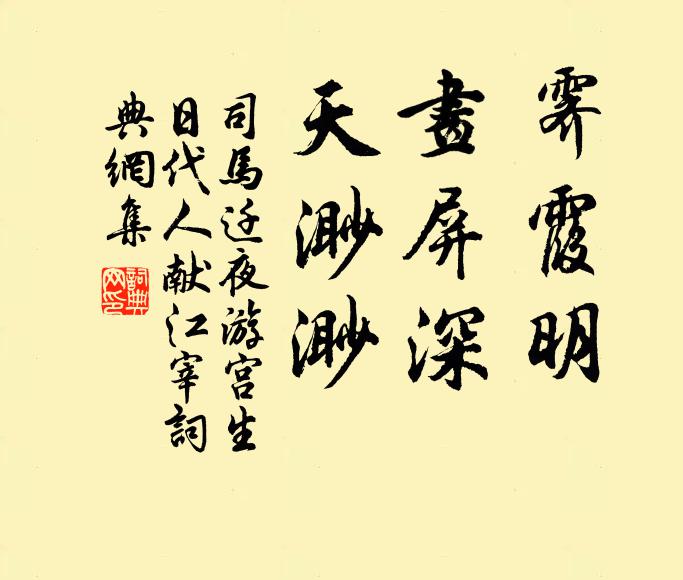 霁霞明
畫屏深
天渺渺
司馬迁夜游宫生
日代人献江宰詞
典網集
詞典
网印